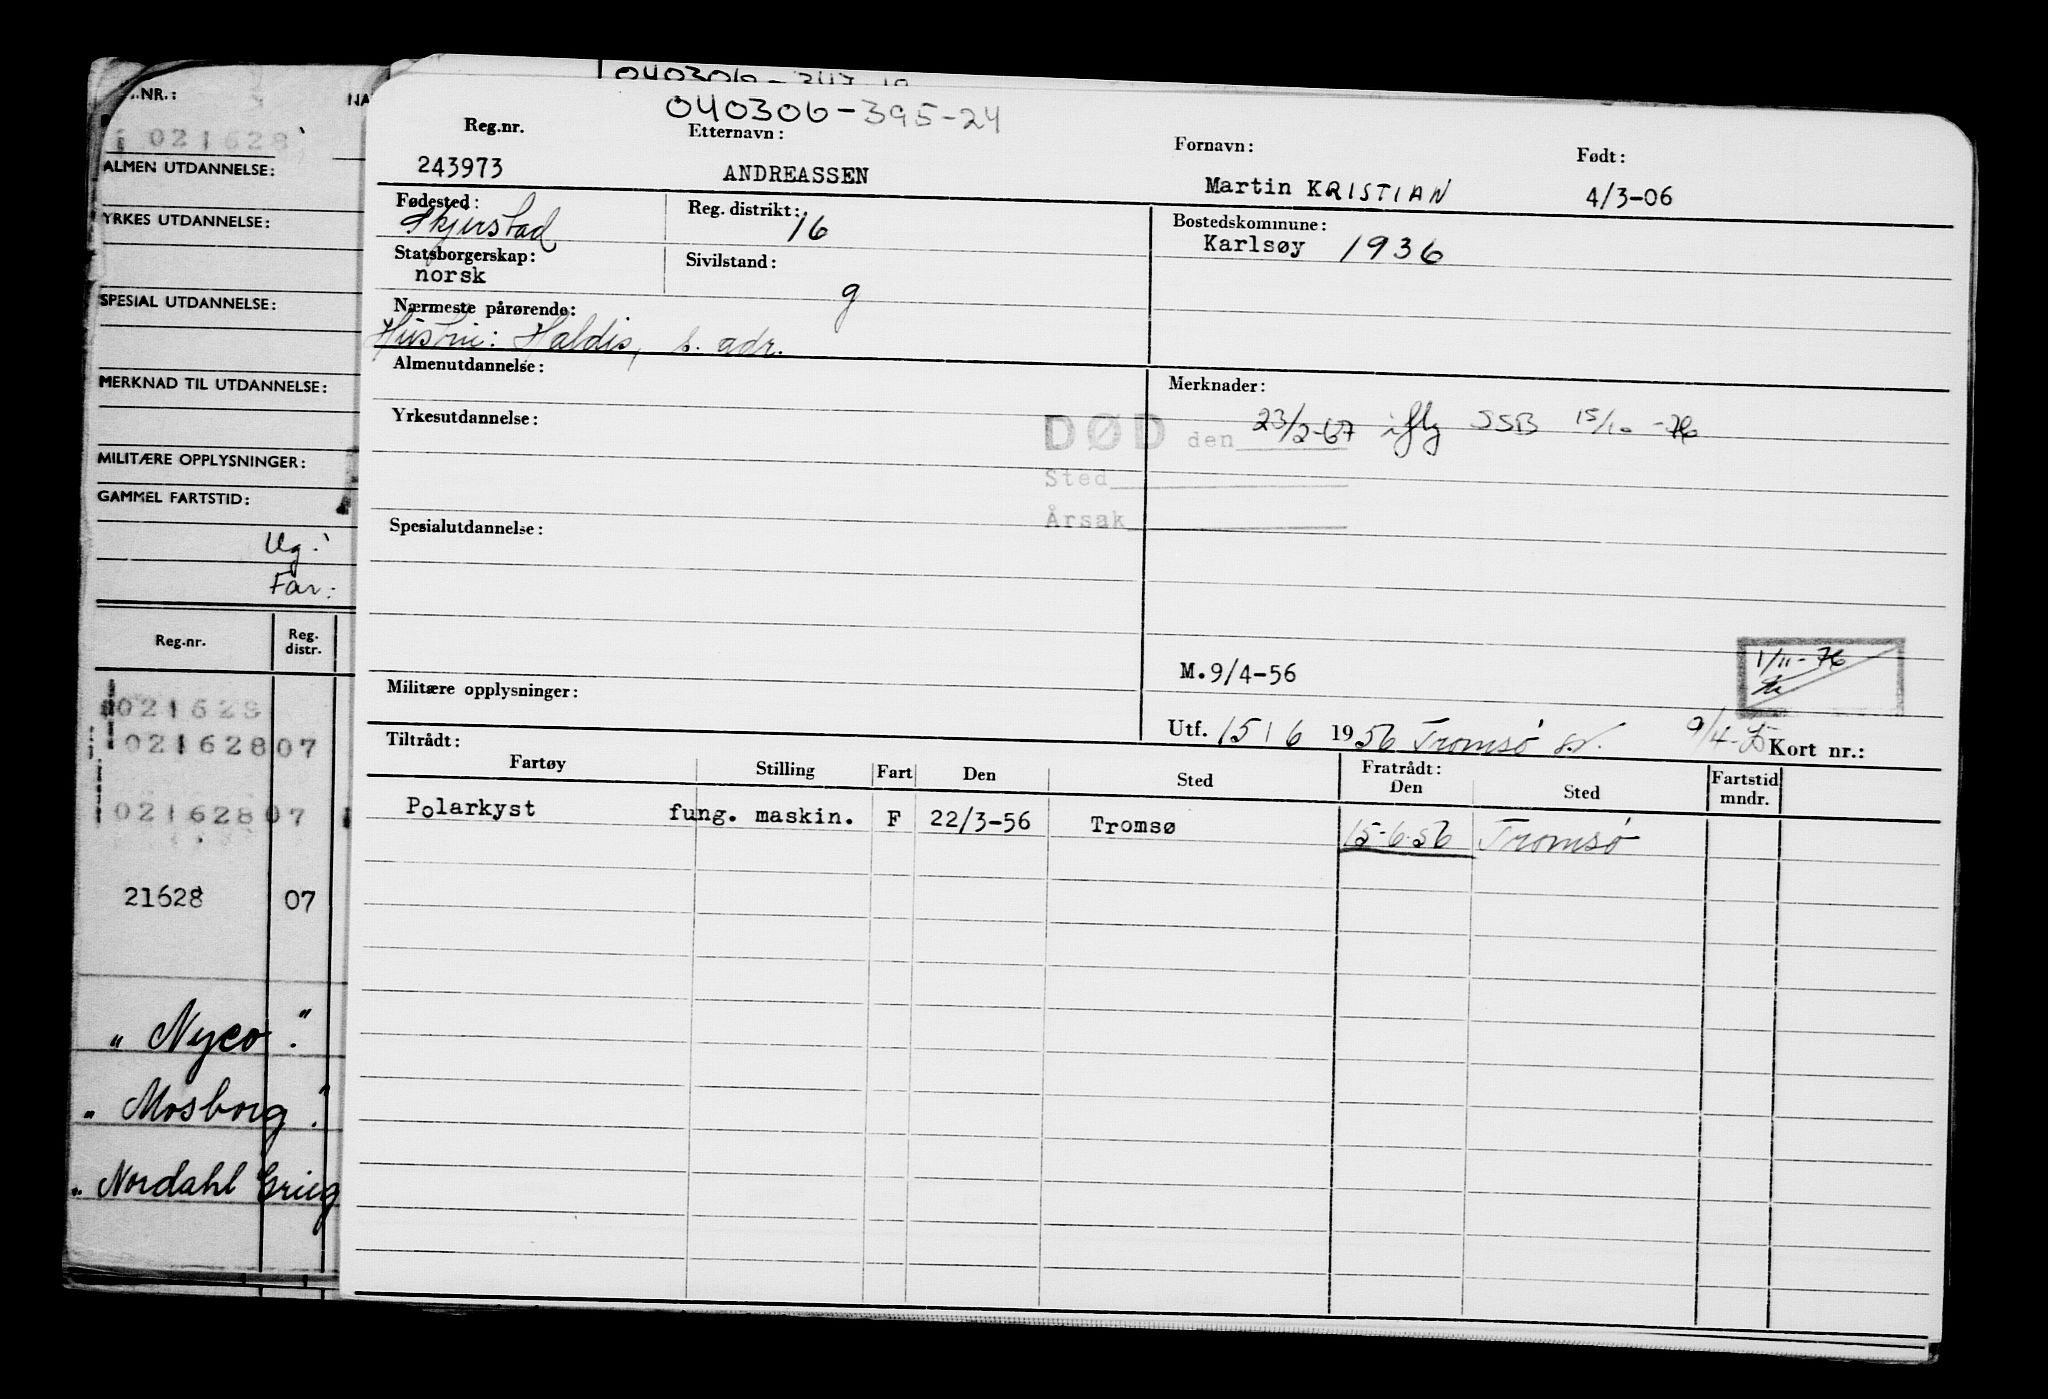 040306-395-24
Reg.nr. Etternavn: Fornavn: Født:
243973 ANDREASSEN Martin KRISTIAN 4/3-06
Fødested: Reg. distrikt: Bostedskommune:
Skjerstad 16 Karlsøy 1936
Statsborgerskap: Sivilstand:
norsk g
Nærmeste pårørende:
Hustru: Haldis, s. adr.
Almenutdannelse: Merknader:
Yrkesutdannelse:
DØD den 23/2-67 iflg SSB 15/10-76
Sted
Årsak
Spesialutdannelse:
1/11-76
M.9/4-56
Militære opplysninger:
Utf. 15/6 1956 Tromsø Kort nr.:
Tiltrådt: Fratrådt:
Fartøy Stilling Fart Den Sted Den Sted Fartstid mndr.
Polarkyst fung. maskin. F 22/3-56 Tromsø 15-6-56 Tromsø
NR.: NA
021628
ALMEN UTDANNELSE:
YRKES UTDANNELSE:
SPESIAL UTDANNELSE:
MERKNAD TIL UTDANNELSE:
MILITÆRE OPPLYSNINGER:
GAMMEL FARTSTID:
Ug.
Far:
Reg.nr. Reg. distr.
021628
021628 07
021628 07
21628 07
" Nyco "
" Mosborg "
" Nordahl Grieg